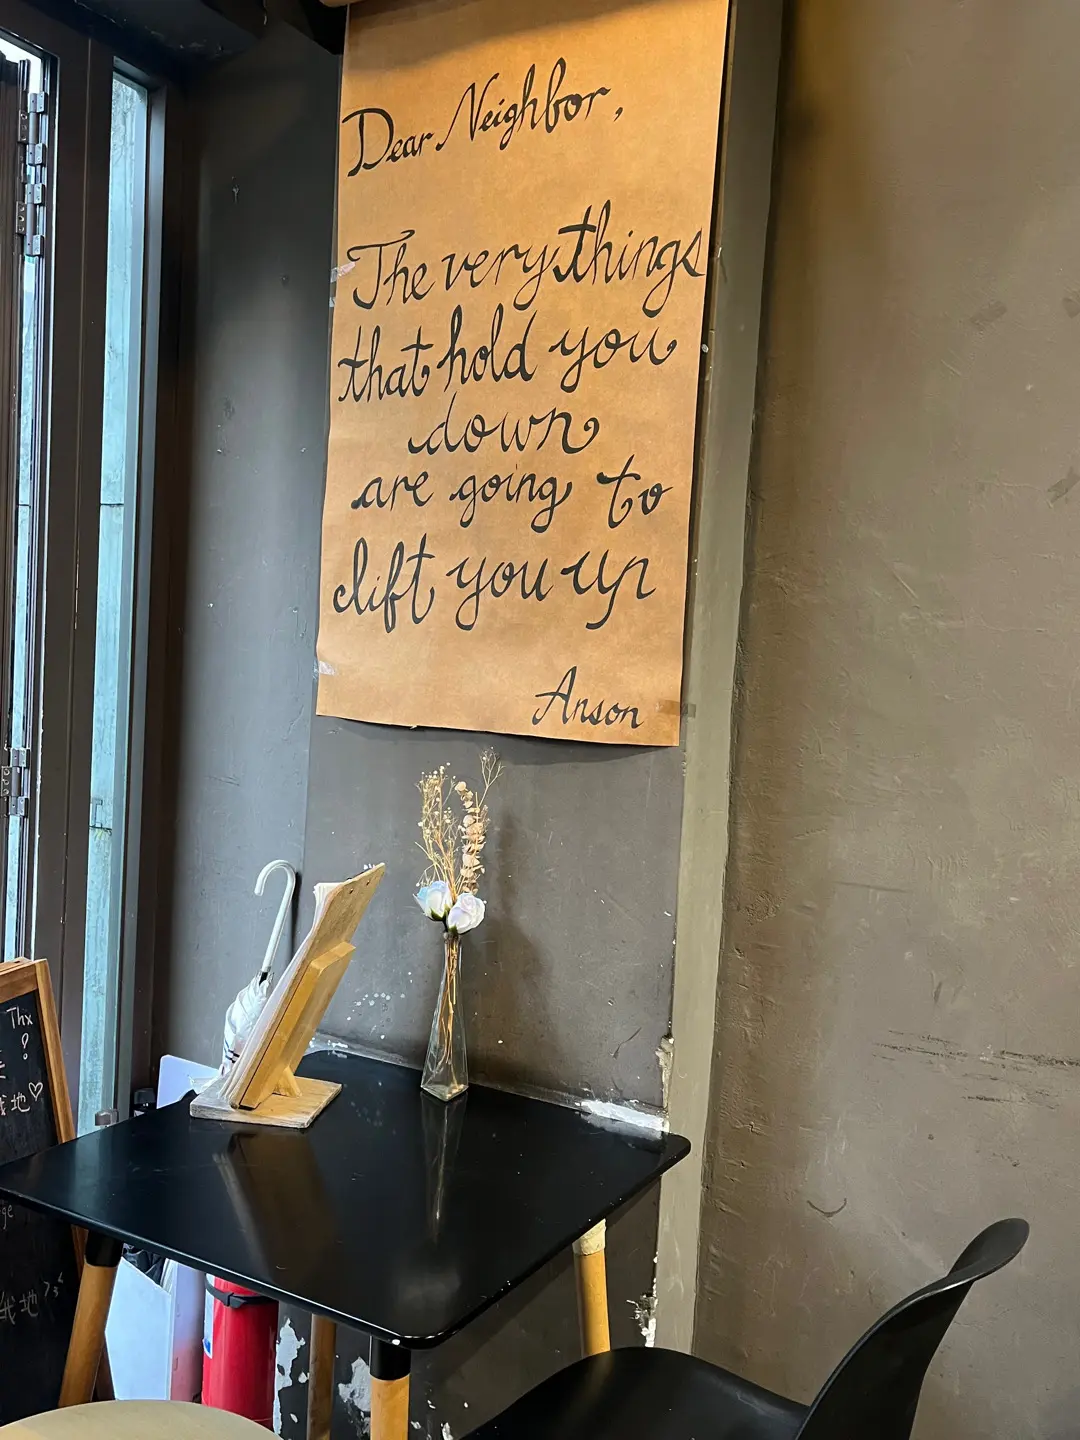 Dear Neighbor,
The very things
that hold you
down
are going to
lift you up
Anson
Thx
!
地♡
地